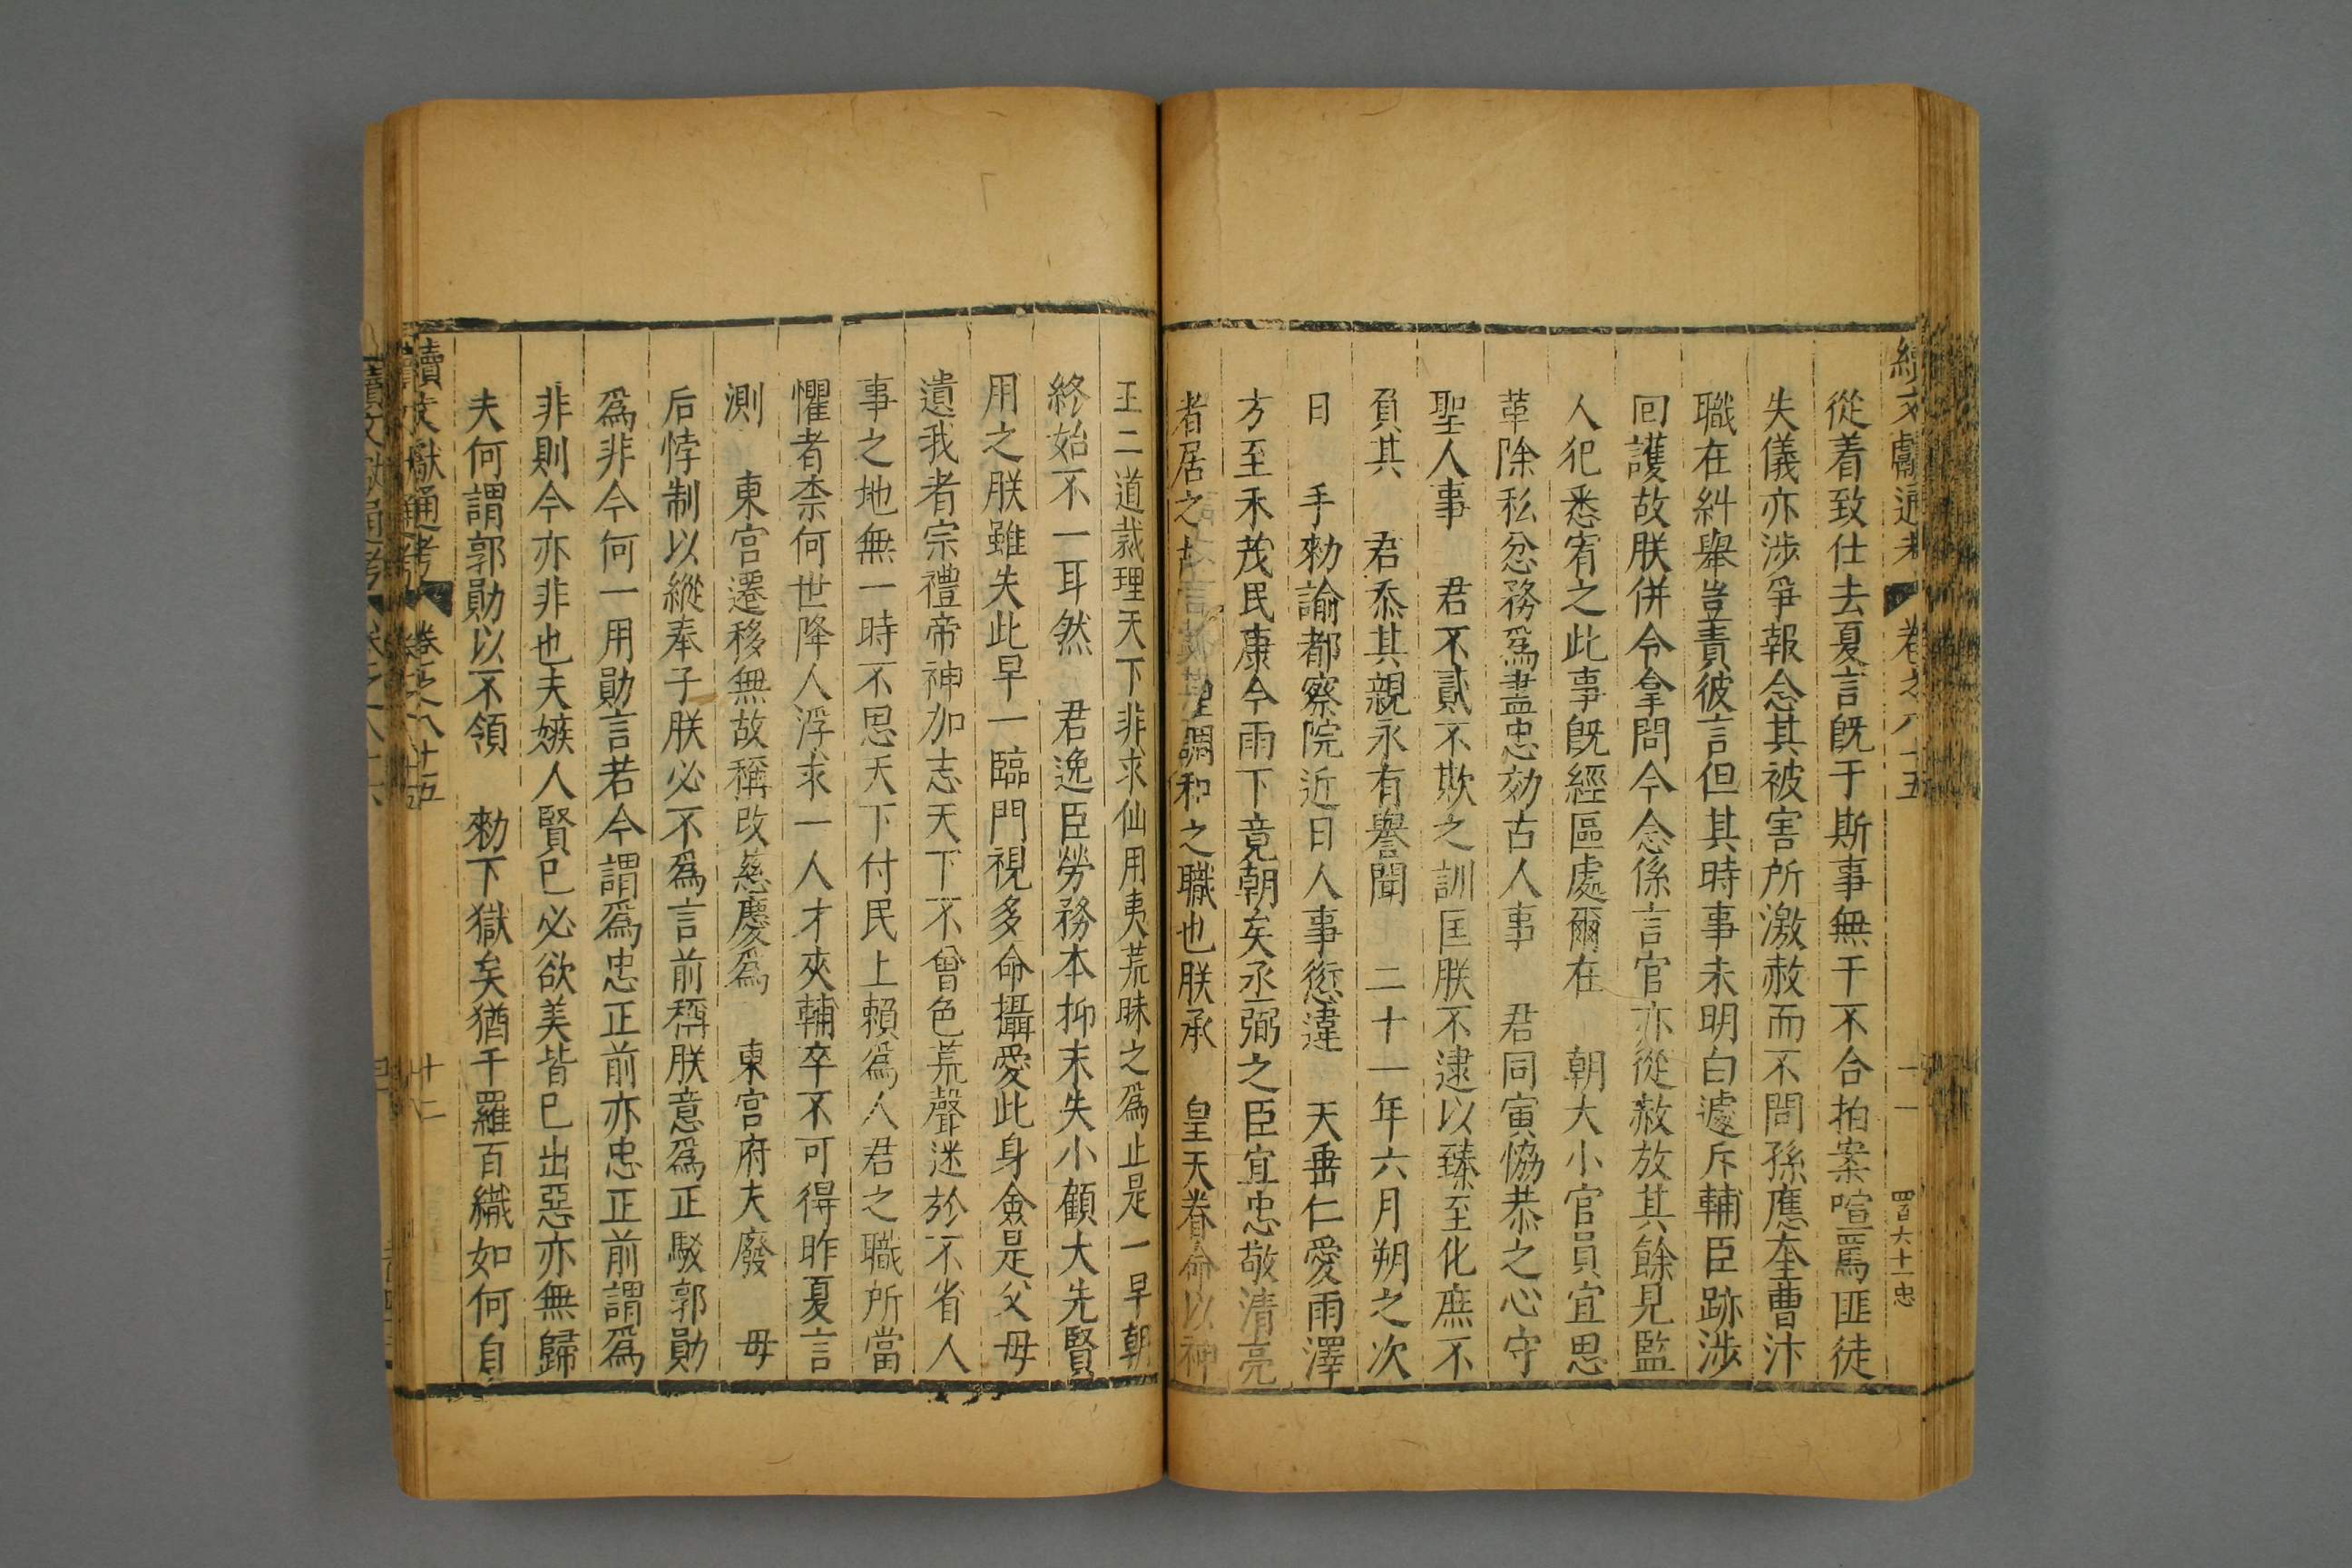 續文獻通考 卷之八十五 四百六十一忠
從着致仕去夏言旣于斯事無干不合拍案喧罵匪徒
失儀亦涉爭報念其被害所激赦而不問孫應奎曹汴
職在糾舉豈責彼言但其時事未明白遽斥輔臣跡涉
回護故朕併令拿問今念係言官亦從赦放其餘見監
人犯悉宥之此事旣經區處爾在 朝大小官員宜思
革除私忿務爲盡忠効古人事 君同寅恊恭之心守
聖人事 君不貳不欺之訓匡朕不逮以臻至化庶不
負其 君忝其親永有譽聞 二十一年六月朔之次
日 手勑諭都察院近日人事愆違 天垂仁愛雨澤
方至禾茂民康今雨下竟朝矣丞弼之臣宜忠敬清亮
者居之 調和之職也朕承 皇天眷命以神
王二道裁理天下非求仙用夷荒昧之爲止是一早朝
終始不一耳然 君逸臣勞務本抑末失小顧大先賢
用之朕雖失此早一臨門視多命攝愛此身僉是父母
遺我者宗禮帝神加志天下不曾色荒聲迷於不省人
事之地無一時不思天下付民上賴爲人君之職所當
懼者柰何世降人浮求一人才夾輔卒不可得昨夏言
測 東宮遷移無故稱改慈慶爲 東宮府夫廢 母
后悖制以縱奉子朕必不爲言前稱朕意爲正駁郭勛
爲非今何一用勛言若今謂爲忠正前亦忠正前謂爲
非則今亦非也夫嫉人賢巳必欲美皆巳出惡亦無歸
夫何謂郭勛以不領 勑下獄矣猶千羅百織如何自
續文獻通考 卷之八十五 十二